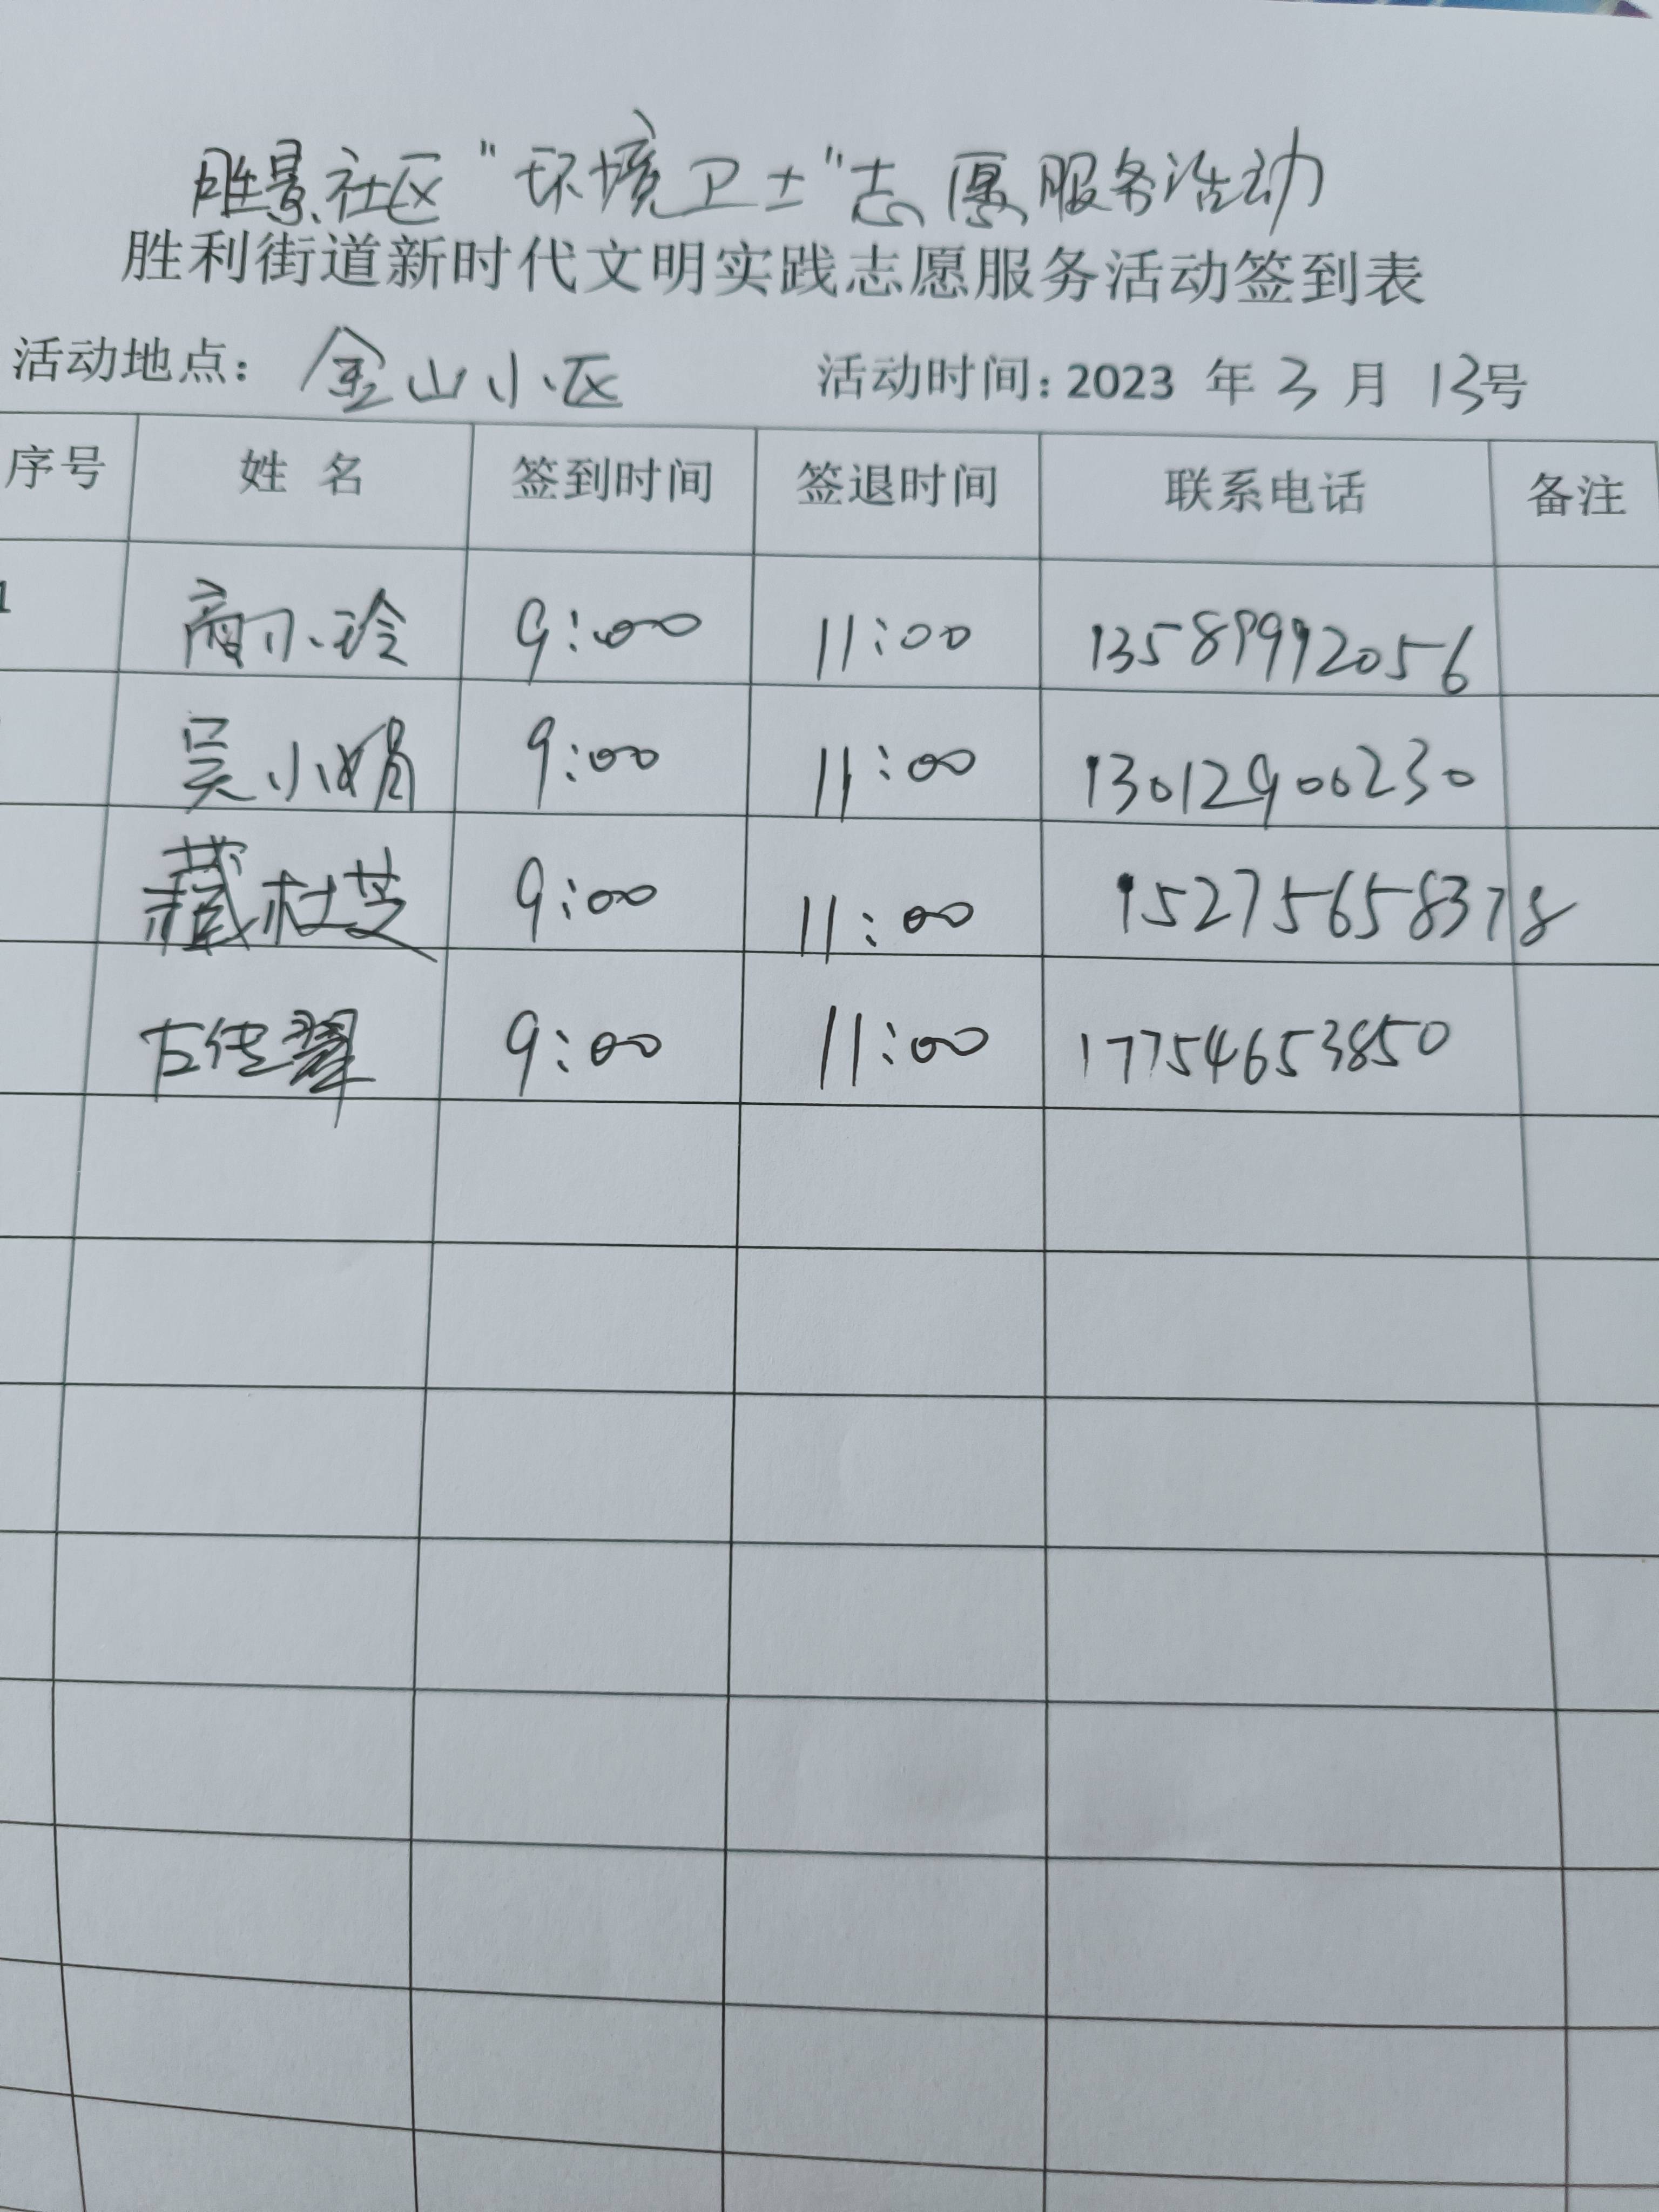 胜景社区"环境卫士"志愿服务活动
胜利街道新时代文明实践志愿服务活动签到表
活动地点：金山小区 活动时间：2023 年 3 月 13号
序号 姓 名 签到时间 签退时间 联系电话 备注
1 商小玲 9:00 11:00 13589992056
吴小娟 9:00 11:00 13012900230
藏杜芝 9:00 11:00 15275658378
左传翠 9:00 11:00 17754653850